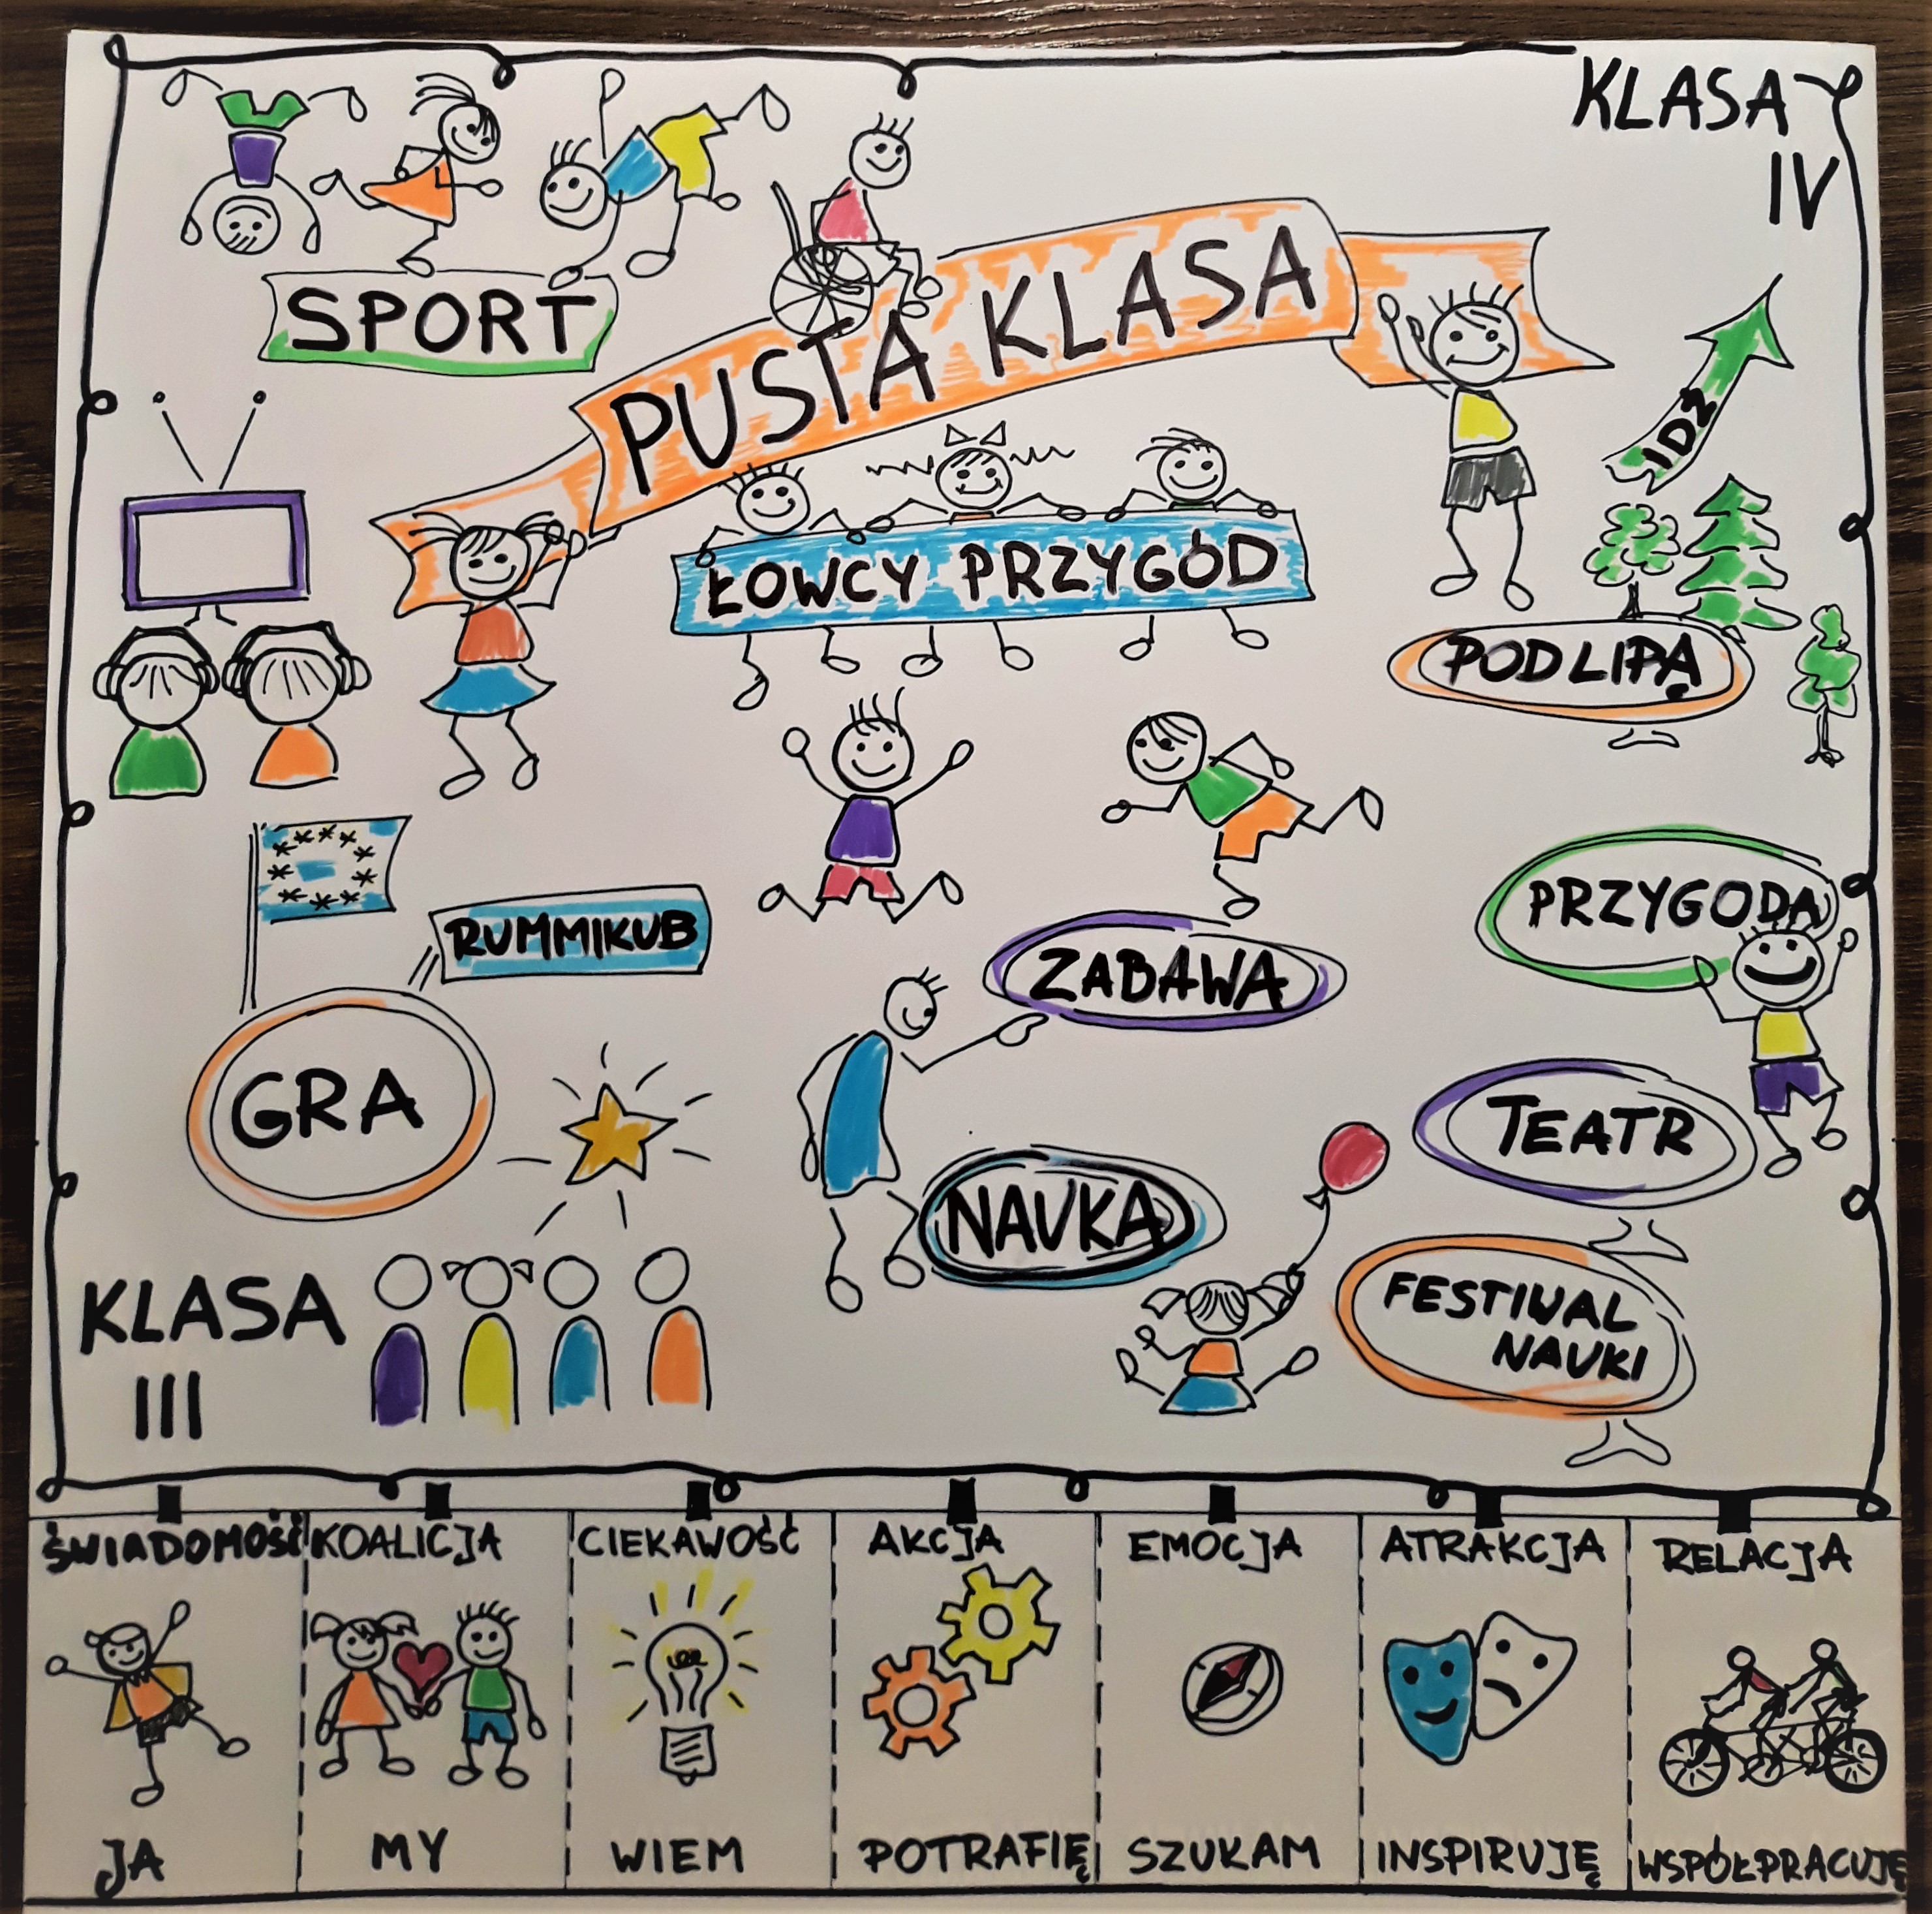 KLASA
IV
SPORT
PUSTA KLASA
IDŹ
ŁOWCY PRZYGÓD
POD LIPĄ
PRZYGODA
RUMMIKUB
ZABAWA
GRA
TEATR
NAUKA
FESTIWAL
NAUKI
KLASA
III
ŚWIADOMOŚĆ KOALICJA CIEKAWOŚĆ AKCJA EMOCJA ATRAKCJA RELACJA
JA MY WIEM POTRAFIĘ SZUKAM INSPIRUJĘ WSPÓŁPRACUJĘ